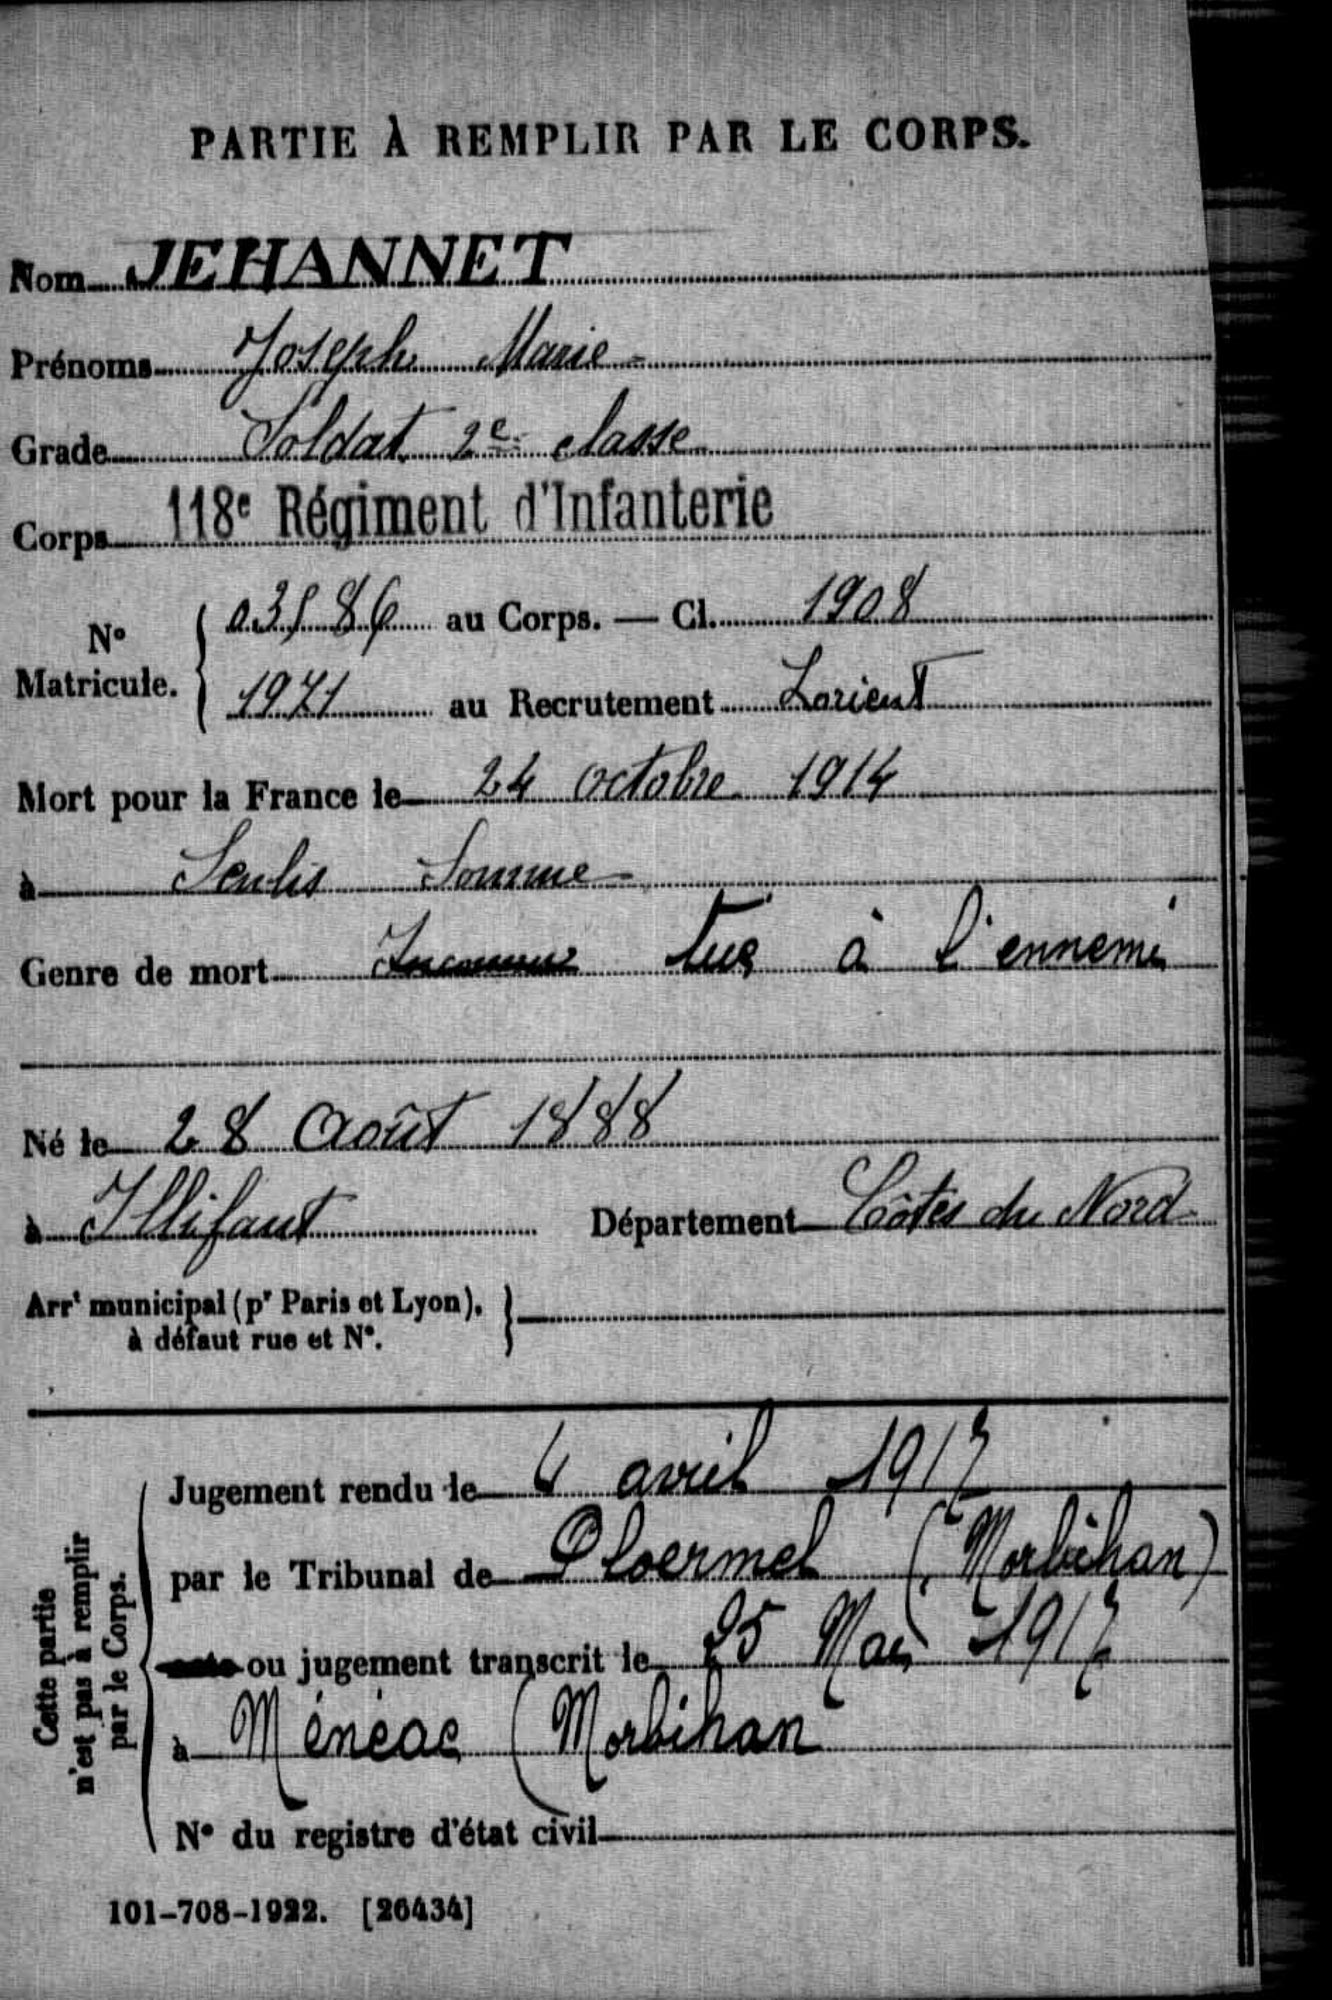 PARTIE À REMPLIR PAR LE CORPS.
Nom JEHANNET
Prénoms Joseph Marie
Grade Soldat 2e classe
Corps 118e Régiment d'Infanterie
N° Matricule. { au Corps. — Cl. 1908
1971 au Recrutement Lorient
Mort pour la France le 24 octobre 1914
à Senlis Somme
Genre de mort Inconnu tué à l'ennemi
Né le 28 Août 1888
à Illifaut Département Côtes du Nord
Arrt municipal (pr Paris et Lyon), }
à défaut rue et N°.
Cette partie n'est pas à remplir par le Corps.
Jugement rendu le 4 avril 1917
par le Tribunal de Ploermel (Morbihan)
acte ou jugement transcrit le 25 Mai 1917
à Ménéac (Morbihan
N° du registre d'état civil
101-708-1922. [26434]